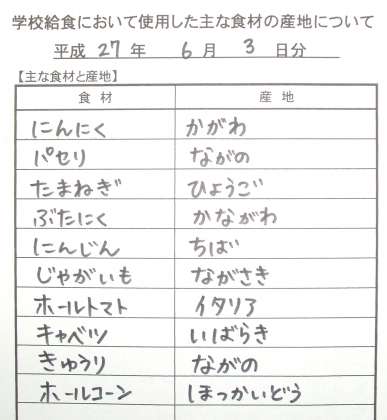 学校給食において使用した主な食材の産地について
平成 27 年 6 月 3 日分
【主な食材と産地】
食材 産地
にんにく かがわ
パセリ ながの
たまねぎ ひょうご
ぶたにく かながわ
にんじん ちば
じゃがいも ながさき
ホールトマト イタリア
キャベツ いばらき
きゅうり ながの
ホールコーン ほっかいどう